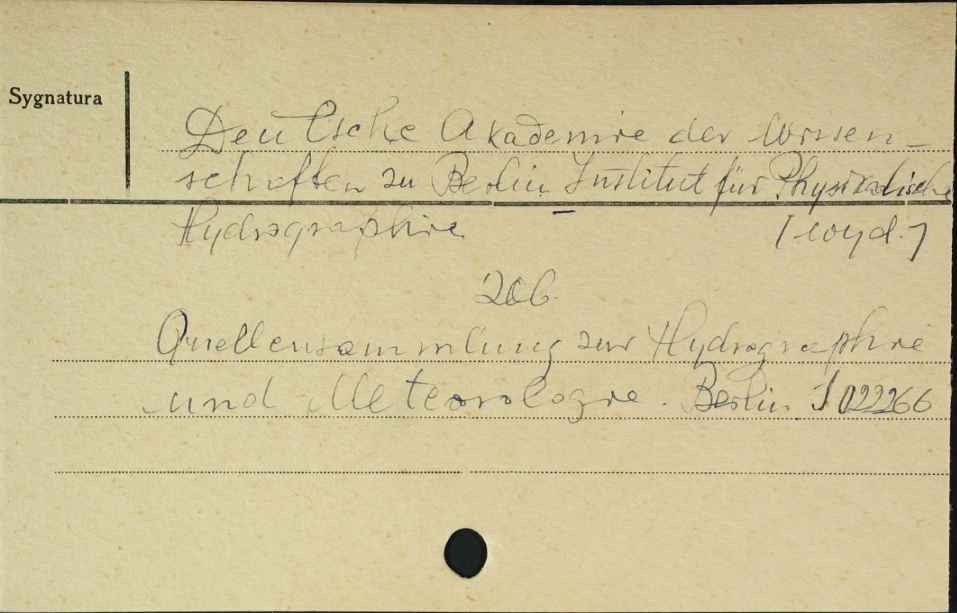 Sygnatura
Deutsche Akademie der Wissen-
schaften zu Berlin Institut für Physikalische
Hydrographie [wyd.]
Zob.
Quellensammlung zur Hydrographie
und Meteorologie. Berlin. J 022266